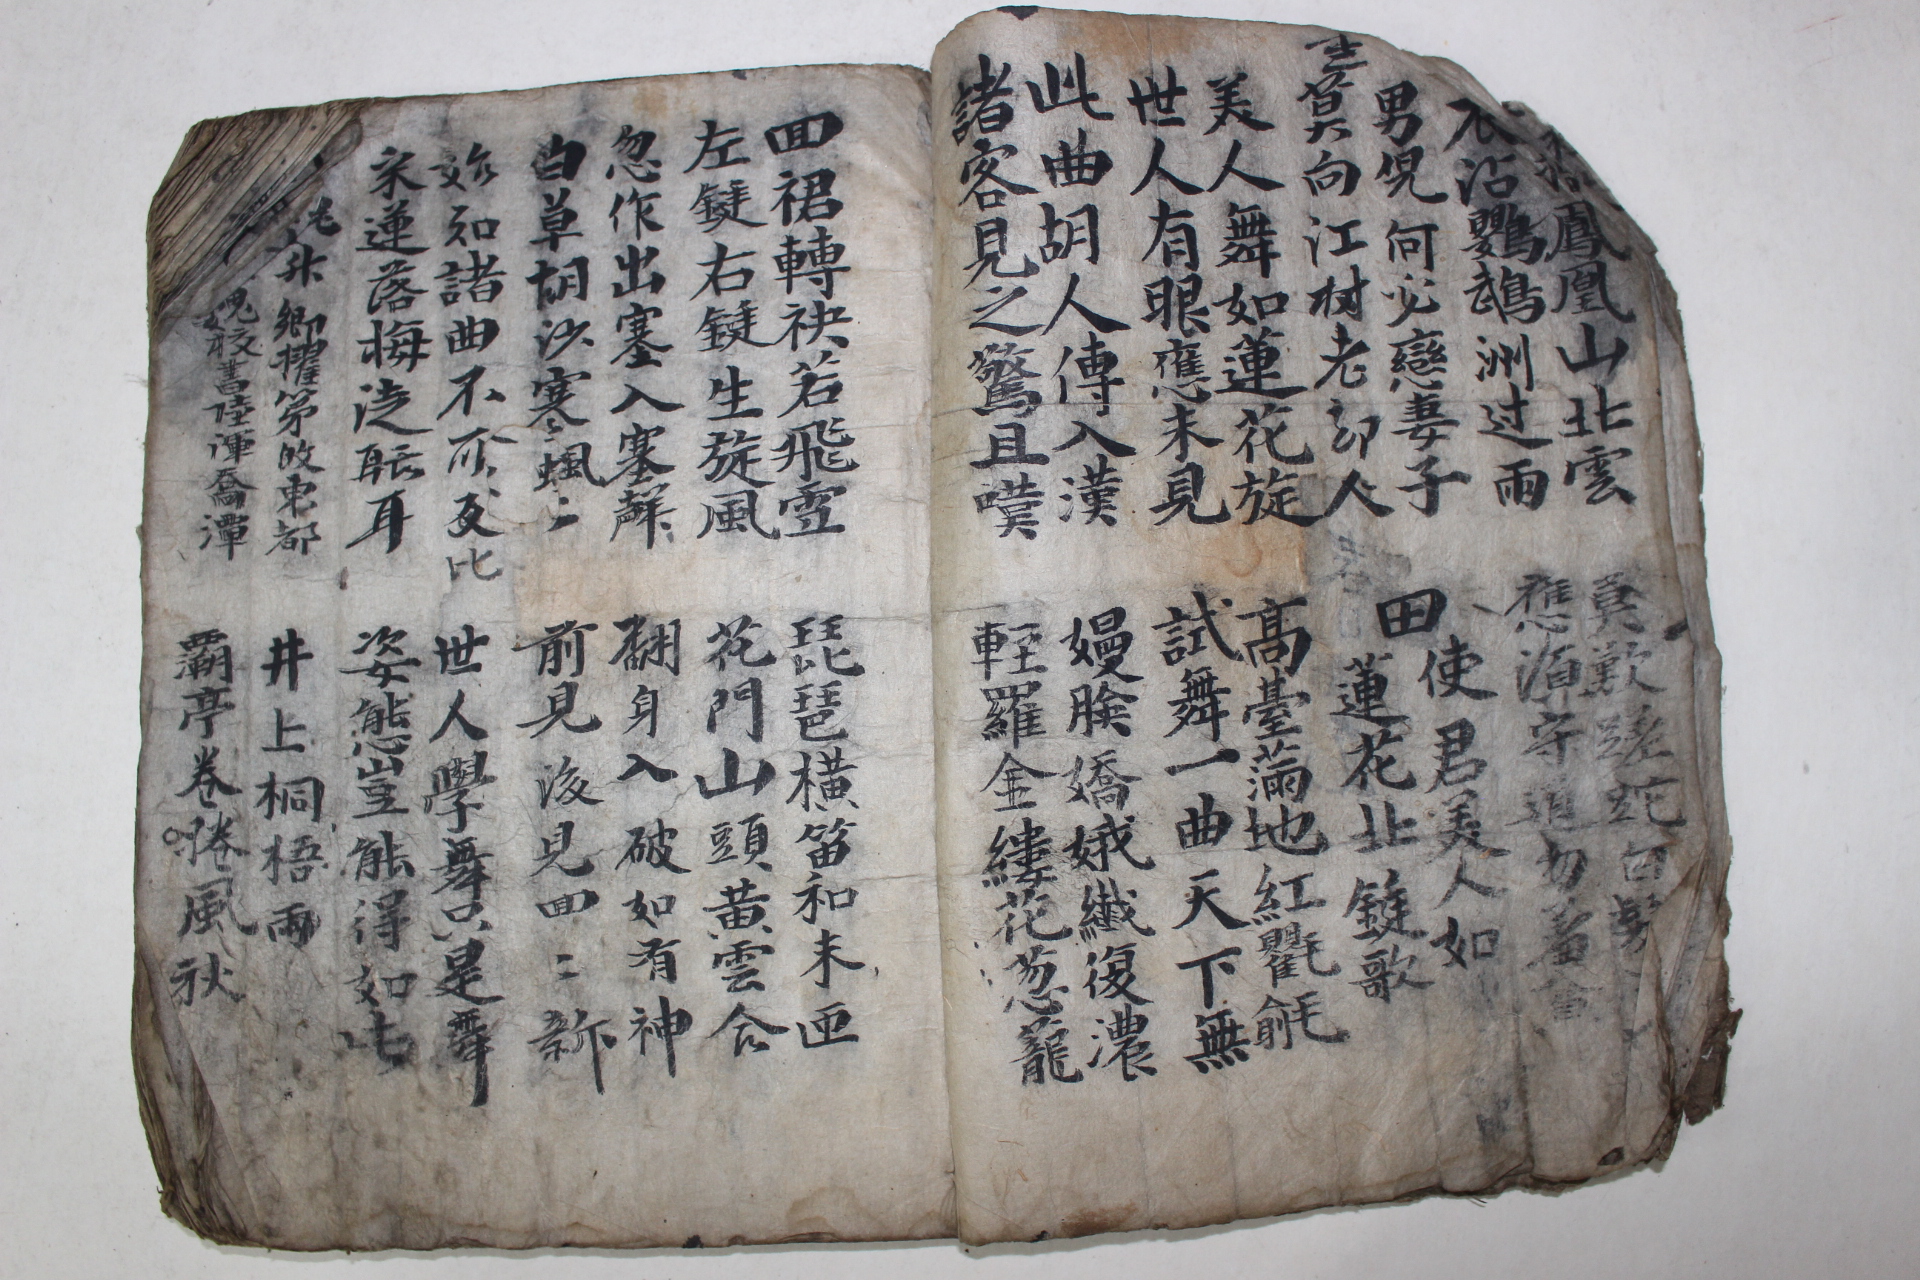 鳳凰山北雲
衣沾鸚鵡洲过雨
莫歎蹉跎白髮
應須守道勿羞
男児何必戀妻子
莫向江树老却人
田使君美人如
蓮花北鏇歌
美人舞如蓮花旋
世人有眼應未見
高臺滿地紅氍毹
試舞一曲天下無
此曲胡人傳入漢
諸客見之驚且嘆
嫚臉嬌娥纖復濃
輕羅金縷花葱蘢
回裙轉袂若飛雪
左鏇右鏇生旋風
琵琶橫笛和未匝
花門山頭黃雲合
忽作出塞入塞聲
白草胡沙寒颯〻
翻身入破如有神
前見後見回〻新
始知諸曲不可及比
采蓮落梅徒聒耳
世人學舞只是舞
姿態豈能得如此
魏升卿擢第故東都
魏校書陸渾喬潭
井上桐梧雨
灞亭卷捲風秋